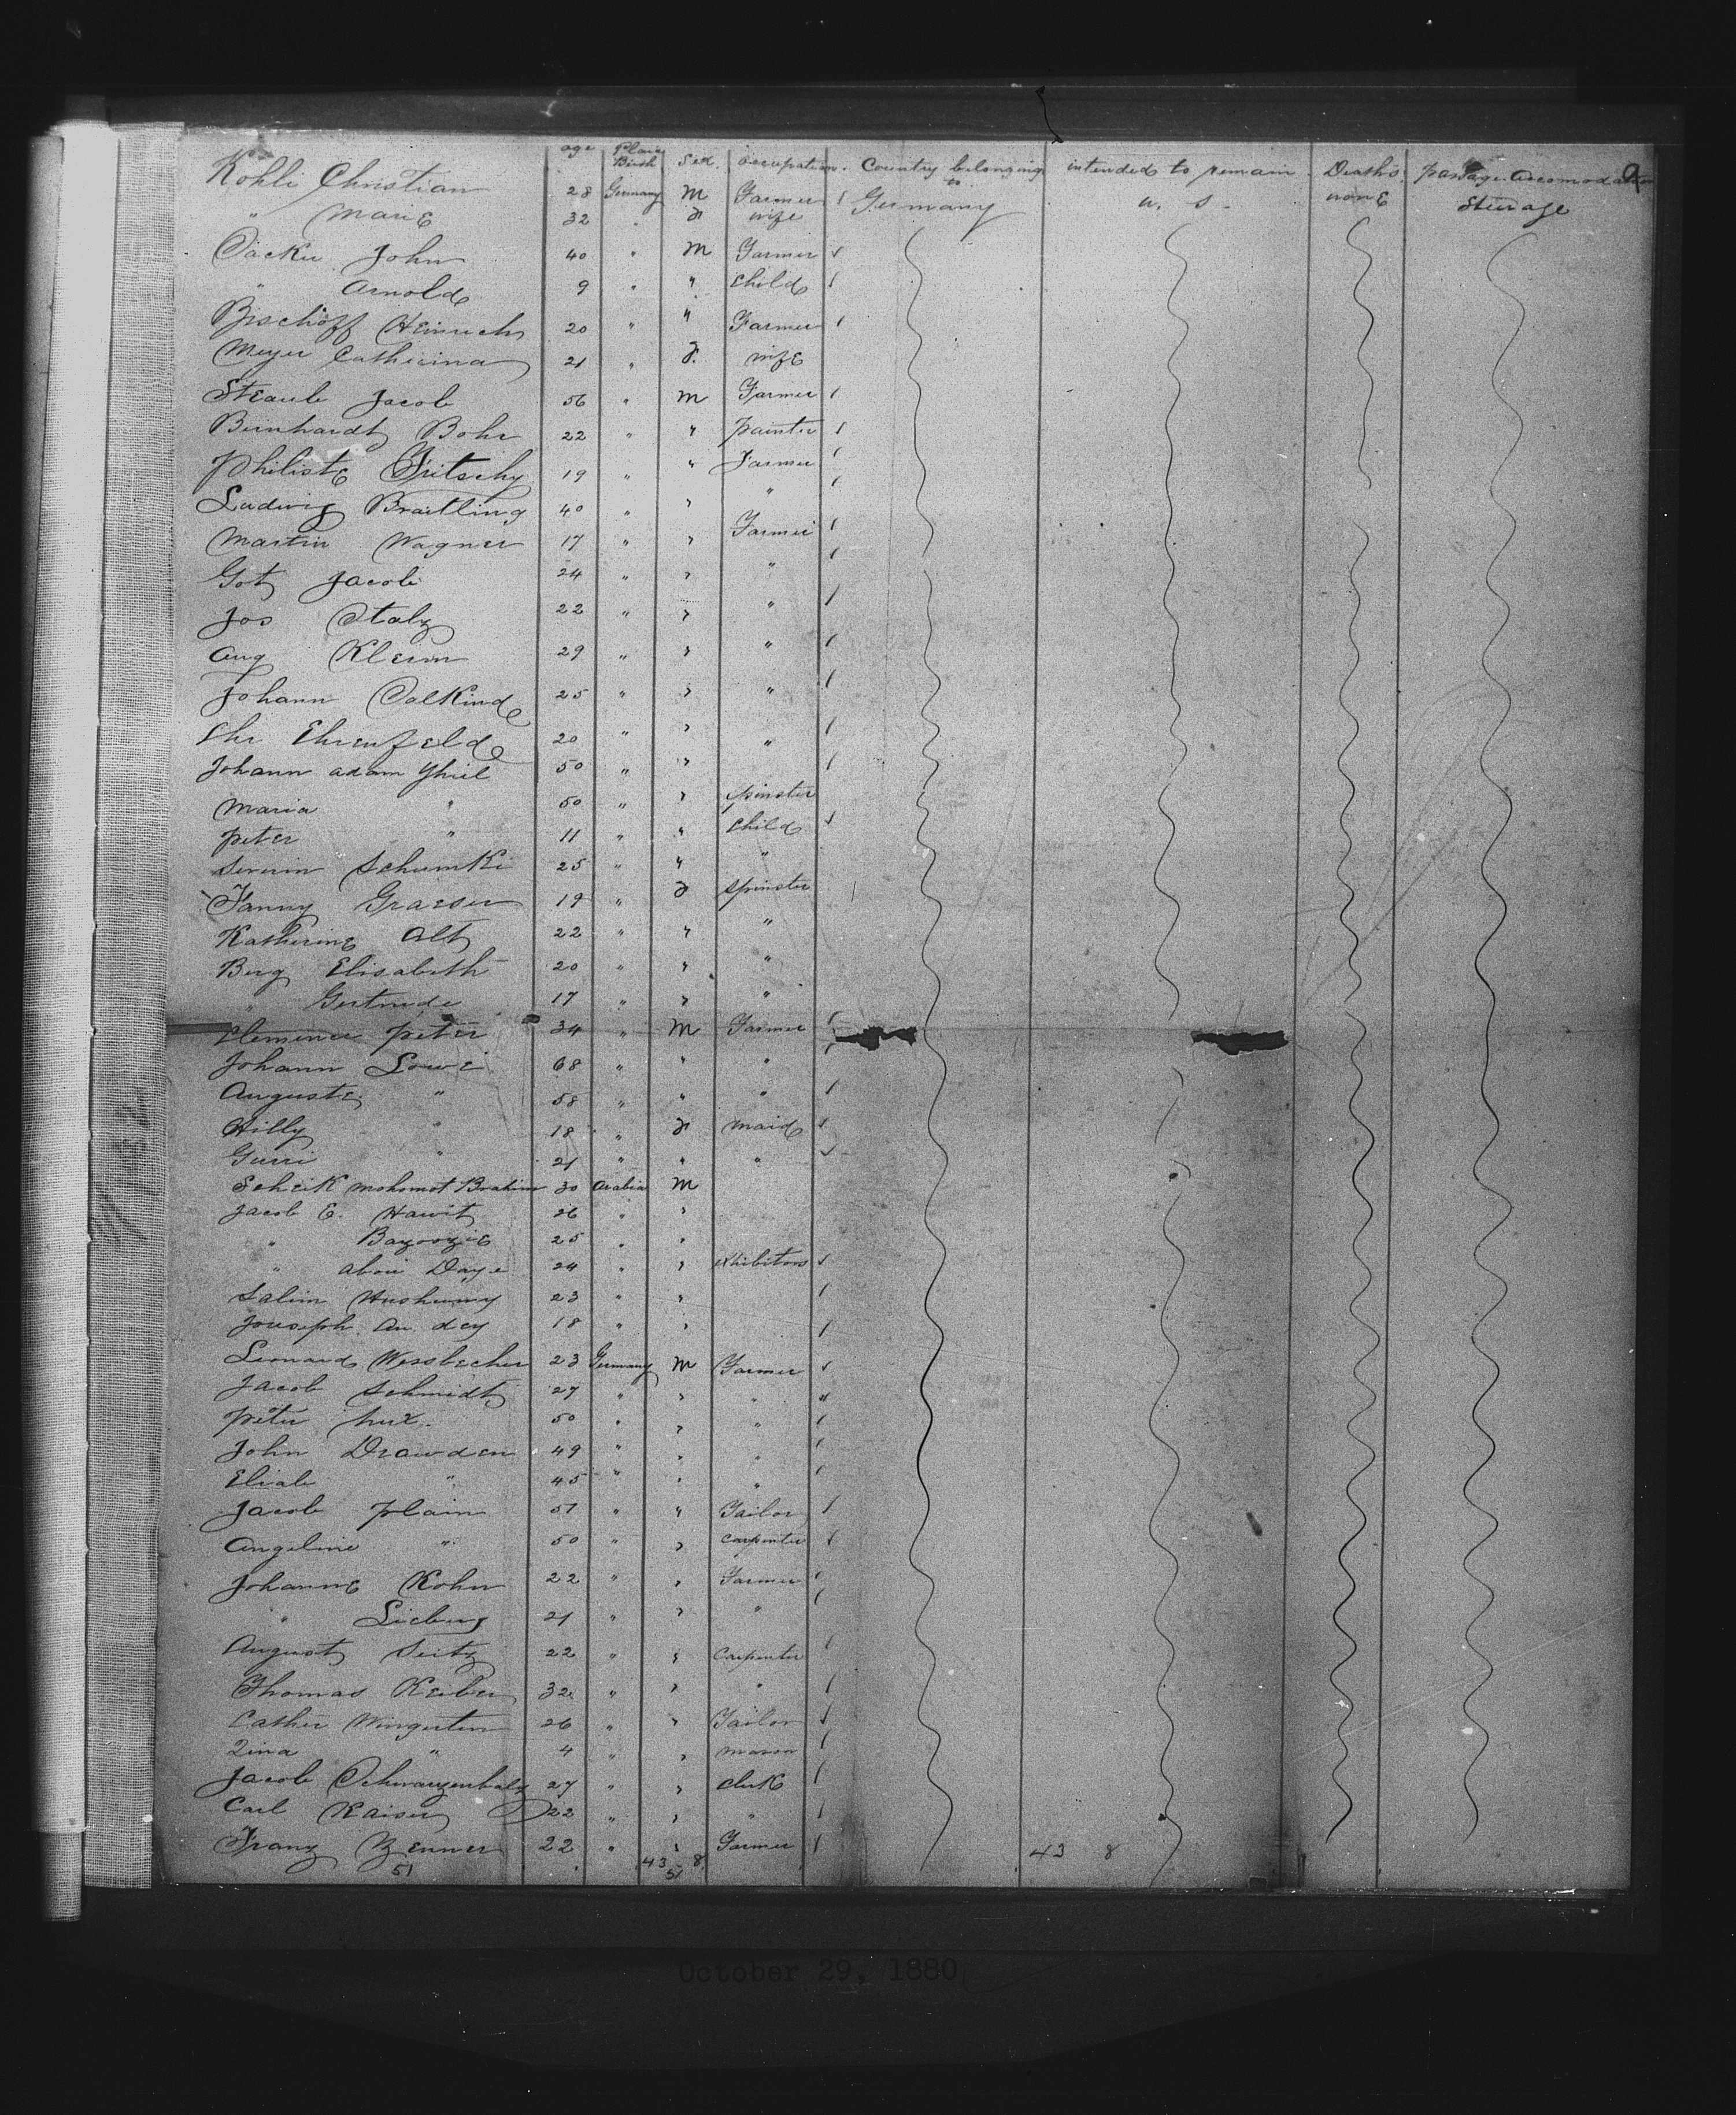 age Place Birth Sex. occupation. Country belonging to intended to remain Deaths. passage accomodation 9
Kohli Christian 28 Germany M Farmer Germany u. s. none Steerage
" Marie 32 " F wife
Säcku John 40 " M Farmer
" Arnold 9 " " child
Bischoff Heinrich 20 " " Farmer
Meyer Catherina 21 " F. wife
Staub Jacob 56 " M Farmer
Bernhardt Bohr 22 " " painter
Philiste Fritschy 19 " " Farmer
Ludwig Braitling 40 " " "
Martin Wagner 17 " " Farmer
Got Jacob 24 " " "
Jos Stolz 22 " " "
Aug Klemm 29 " " "
Johann Salkind 25 " " "
Chr Ehrenfeld 20 " " "
Johann adam Thiel 50 " "
Maria " 50 " " spinster
Peter " 11 " " child
Schumki 25 " " "
Fanny Graeser 19 " F spinster
Katherine Alt 22 " " "
Berg Elisabeth 20 " " "
" Gertrude 17 " " "
Clemence peter 34 " M Farmer
Johann Lowe 68 " " "
Auguste " 58 " " "
Hilly " 18 " F maid
Gurri " 21 " " "
Scheik mohomot Brahim 30 Arabia M
Jacob E. Hawit 26 " "
" Bazoozie 25 " "
" aboui Daye 24 " " exhibitors
Salim 23 " "
Jouseph au dey 18 " "
Leonard Wessbecher 23 Germany M Farmer
Jacob Schmidt 27 " " "
Peter hux. 50 " " "
John Drawden 49 " " "
" 45 " " "
Jacob plain 51 " " Tailor
Angeline " 50 " " carpenter
Johanne Kohn 22 " " Farmer
" 21 " " "
August Seitz 22 " " Carpenter
Thomas Keiber 32 " " "
Cather Wingerten 26 " " Tailor
Lina " 4 " " mason
Jacob 27 " " clerk
Carl Kaiser 22 " " "
Franz Zenner 22 " " Farmer
51 43 8 51 43 8
October 29, 1880